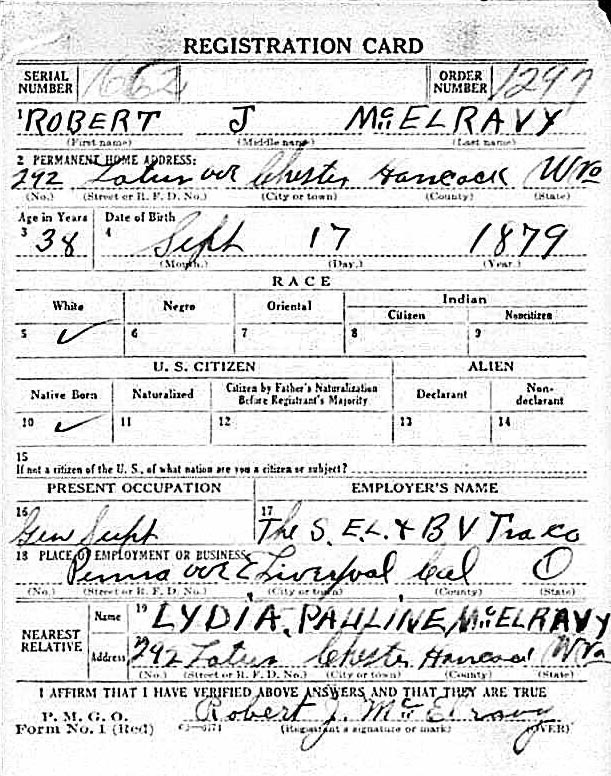 REGISTRATION CARD
SERIAL NUMBER 1662 ORDER NUMBER 1297
1 ROBERT J McELRAVY
(First name) (Middle name) (Last name)
2 PERMANENT HOME ADDRESS:
292 ave Chester Hancock W Va
(No.) (Street or R. F. D. No.) (City or town) (County) (State)
Age in Years Date of Birth
3 38 4 Sept 17 1879
(Month.) (Day.) (Year.)
RACE
White Negro Oriental Indian
Citizen Noncitizen
5 ✓ 6 7 8 9
U. S. CITIZEN ALIEN
Native Born Naturalized Citizen by Father's Naturalization Before Registrant's Majority Declarant Non-declarant
10 ✓ 11 12 13 14
15
If not a citizen of the U. S., of what nation are you a citizen or subject?
PRESENT OCCUPATION EMPLOYER'S NAME
16 Gen Supt 17 The S. E. L. & B V Tra Co
18 PLACE OF EMPLOYMENT OR BUSINESS:
Penna ave E Liverpool Col O
(No.) (Street or R. F. D. No.) (City or town) (County) (State)
NEAREST RELATIVE Name 19 LYDIA PAULINE McELRAVY
Address 20 292 Chester Hancock W Va
(No.) (Street or R. F. D. No.) (City or town) (County) (State)
I AFFIRM THAT I HAVE VERIFIED ABOVE ANSWERS AND THAT THEY ARE TRUE
P. M. G. O.
Form No. 1 (Red) Robert J. McElravy
(Registrant's signature or mark) (OVER)